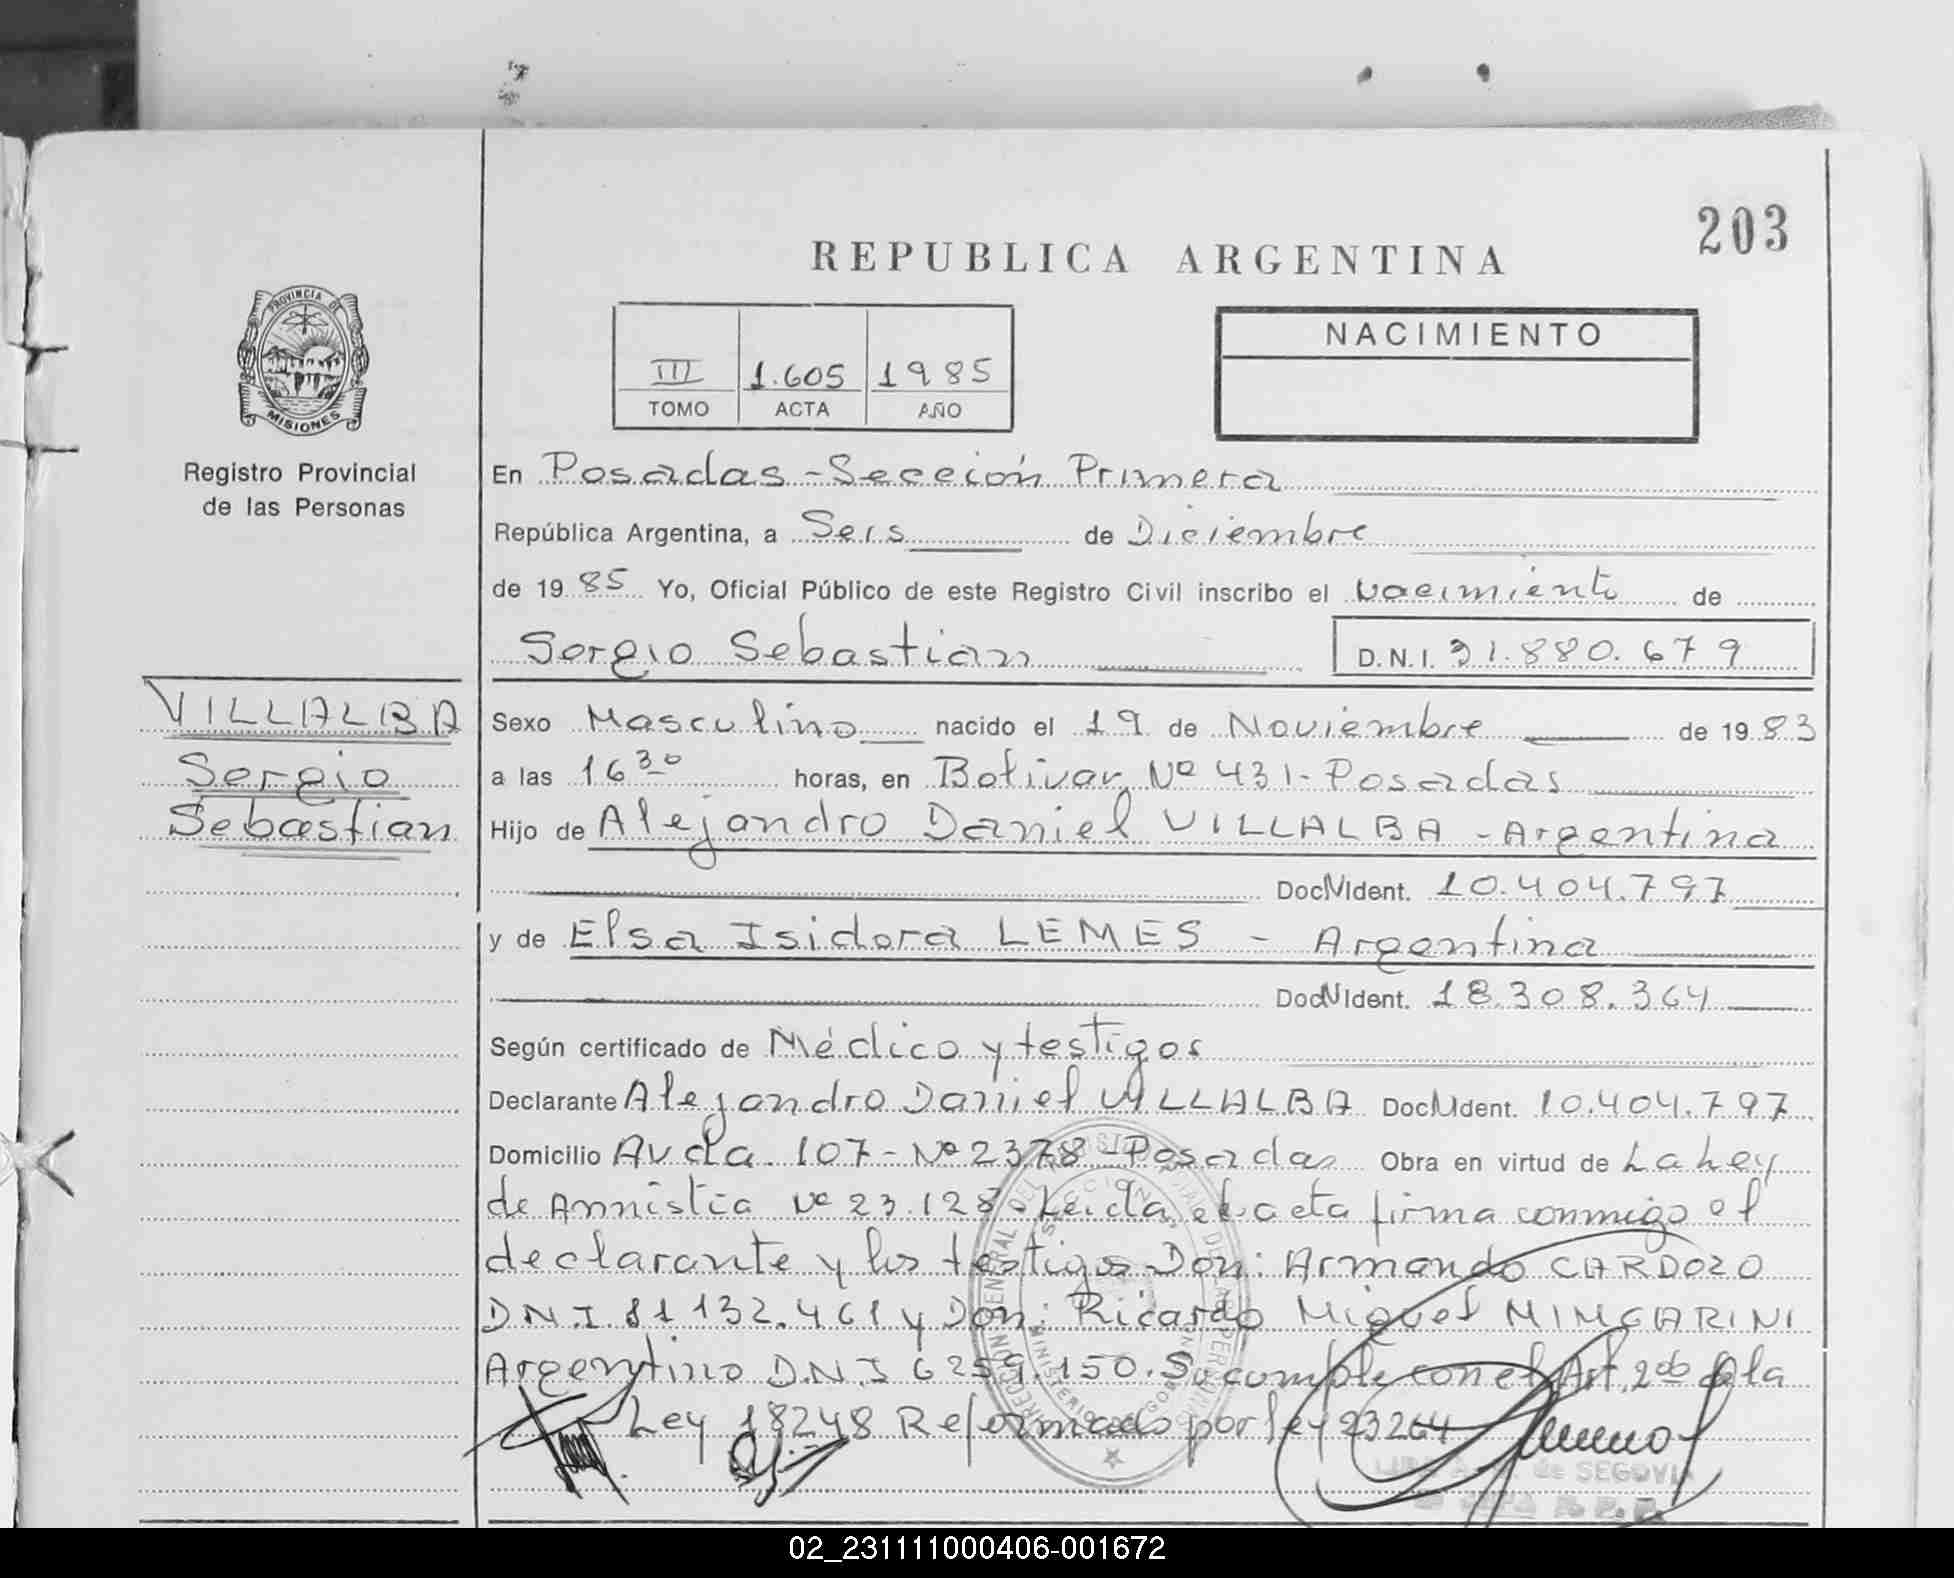 203
REPUBLICA ARGENTINA
PROVINCIA DE
MISIONES
Registro Provincial
de las Personas
III 1.605 1985
TOMO ACTA AÑO
NACIMIENTO
En Posadas - Sección Primera
República Argentina, a Seis de Diciembre
de 1985 Yo, Oficial Público de este Registro Civil inscribo el nacimiento de
Sergio Sebastian D.N.I. 31.880.679
VILLALBA
Sergio
Sebastian
Sexo Masculino nacido el 19 de Noviembre de 1983
a las 16 30 horas, en Bolivar Nº 431 - Posadas
Hijo de Alejandro Daniel VILLALBA - Argentina
Doc N Ident. 10.404.797
y de Elsa Isidora LEMES - Argentina
Doc N Ident. 18.308.364
Según certificado de Médico y testigos
Declarante Alejandro Daniel VILLALBA Doc N Ident. 10.404.797
Domicilio Avda. 107 - Nº 2378 - Posadas Obra en virtud de La Ley
de Amnistia Nº 23.128. Leida el acta firma conmigo el
declarante y los testigos Don: Armando CARDOZO
D.N.I. 11 132.461 y Don: Ricardo Miguel MINGARINI
Argentino D.N.I 6259.150. Se cumple con el Art. 2do de la
Ley 18248 Reformado por ley 23264
de SEGOVIA
02_231111000406-001672